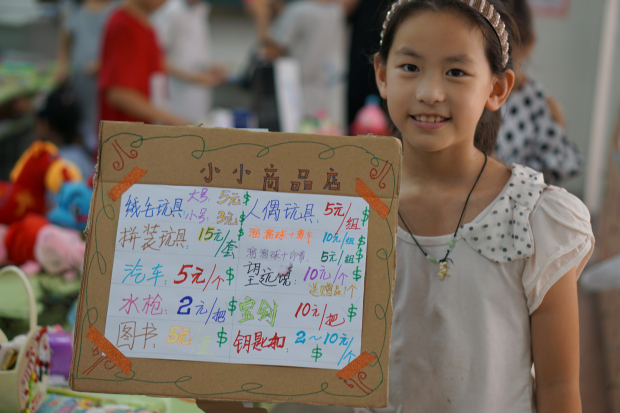 小小商品店
绒毛玩具 大号 5元$
小号 3元$
人偶玩具: 5元/组$
拼装玩具: 15元/套$
10元/组
5元/组
汽车: 5元/个$
望远镜: 10元/个$
水枪: 2元/把$
宝剑 10元/把$
图书 5元/$
钥匙扣: 2~10元/个$